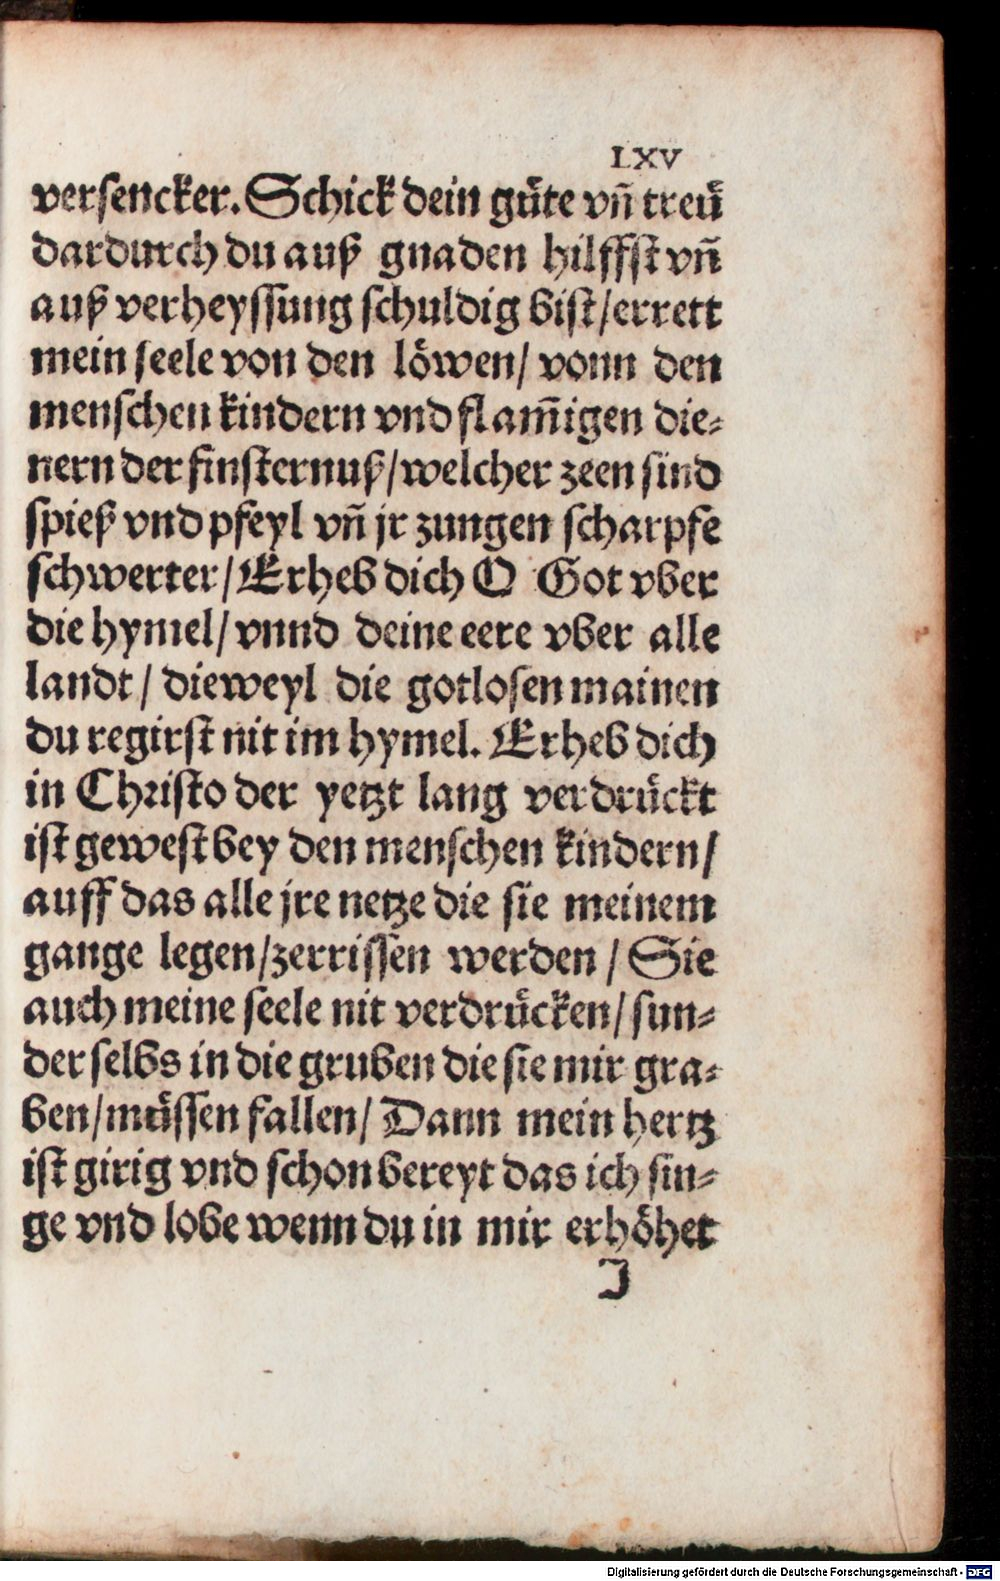 LXV
versencker. Schick dein guͤte vñ treuͤ
dardurch du auß gnaden hilffst vñ
auß verheyssung schuldig bist/errett
mein seele von den löwen/ vonn den
menschen kindern vnd flam̄igen die⸗
nern der finsternuß/welcher zeen sind
spieß vnd pfeyl vñ jr zungen scharpfe
schwerter/Erheb dich O Got vber
die hymel/vnnd deine eere vber alle
landt/ dieweyl die gotlosen mainen
du regirst nit im hymel. Erheb dich
in Christo der yetzt lang verdruͤckt
ist gewest bey den menschen kindern/
auff das alle jre netze die sie meinem
gange legen/zerrissen werden/Sie
auch meine seele nit verdruͤcken/sun⸗
der selbs in die gruben die sie mir gra⸗
ben/muͤssen fallen/Dann mein hertz
ist girig vnd schon bereyt das ich sin⸗
ge vnd lobe wenn du in mir erhöhet
J
Digitalisierung gefördert durch die Deutsche Forschungsgemeinschaft - DFG